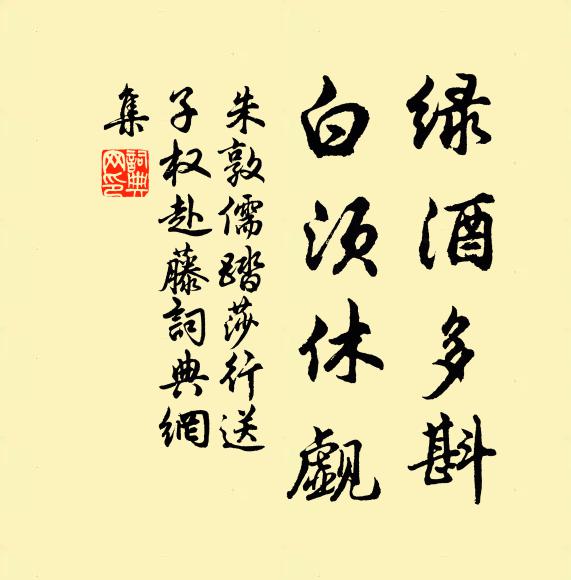 绿酒多斟
白须休觑
朱敦儒踏莎行送
子权赴藤词典網
集
詞典
网印